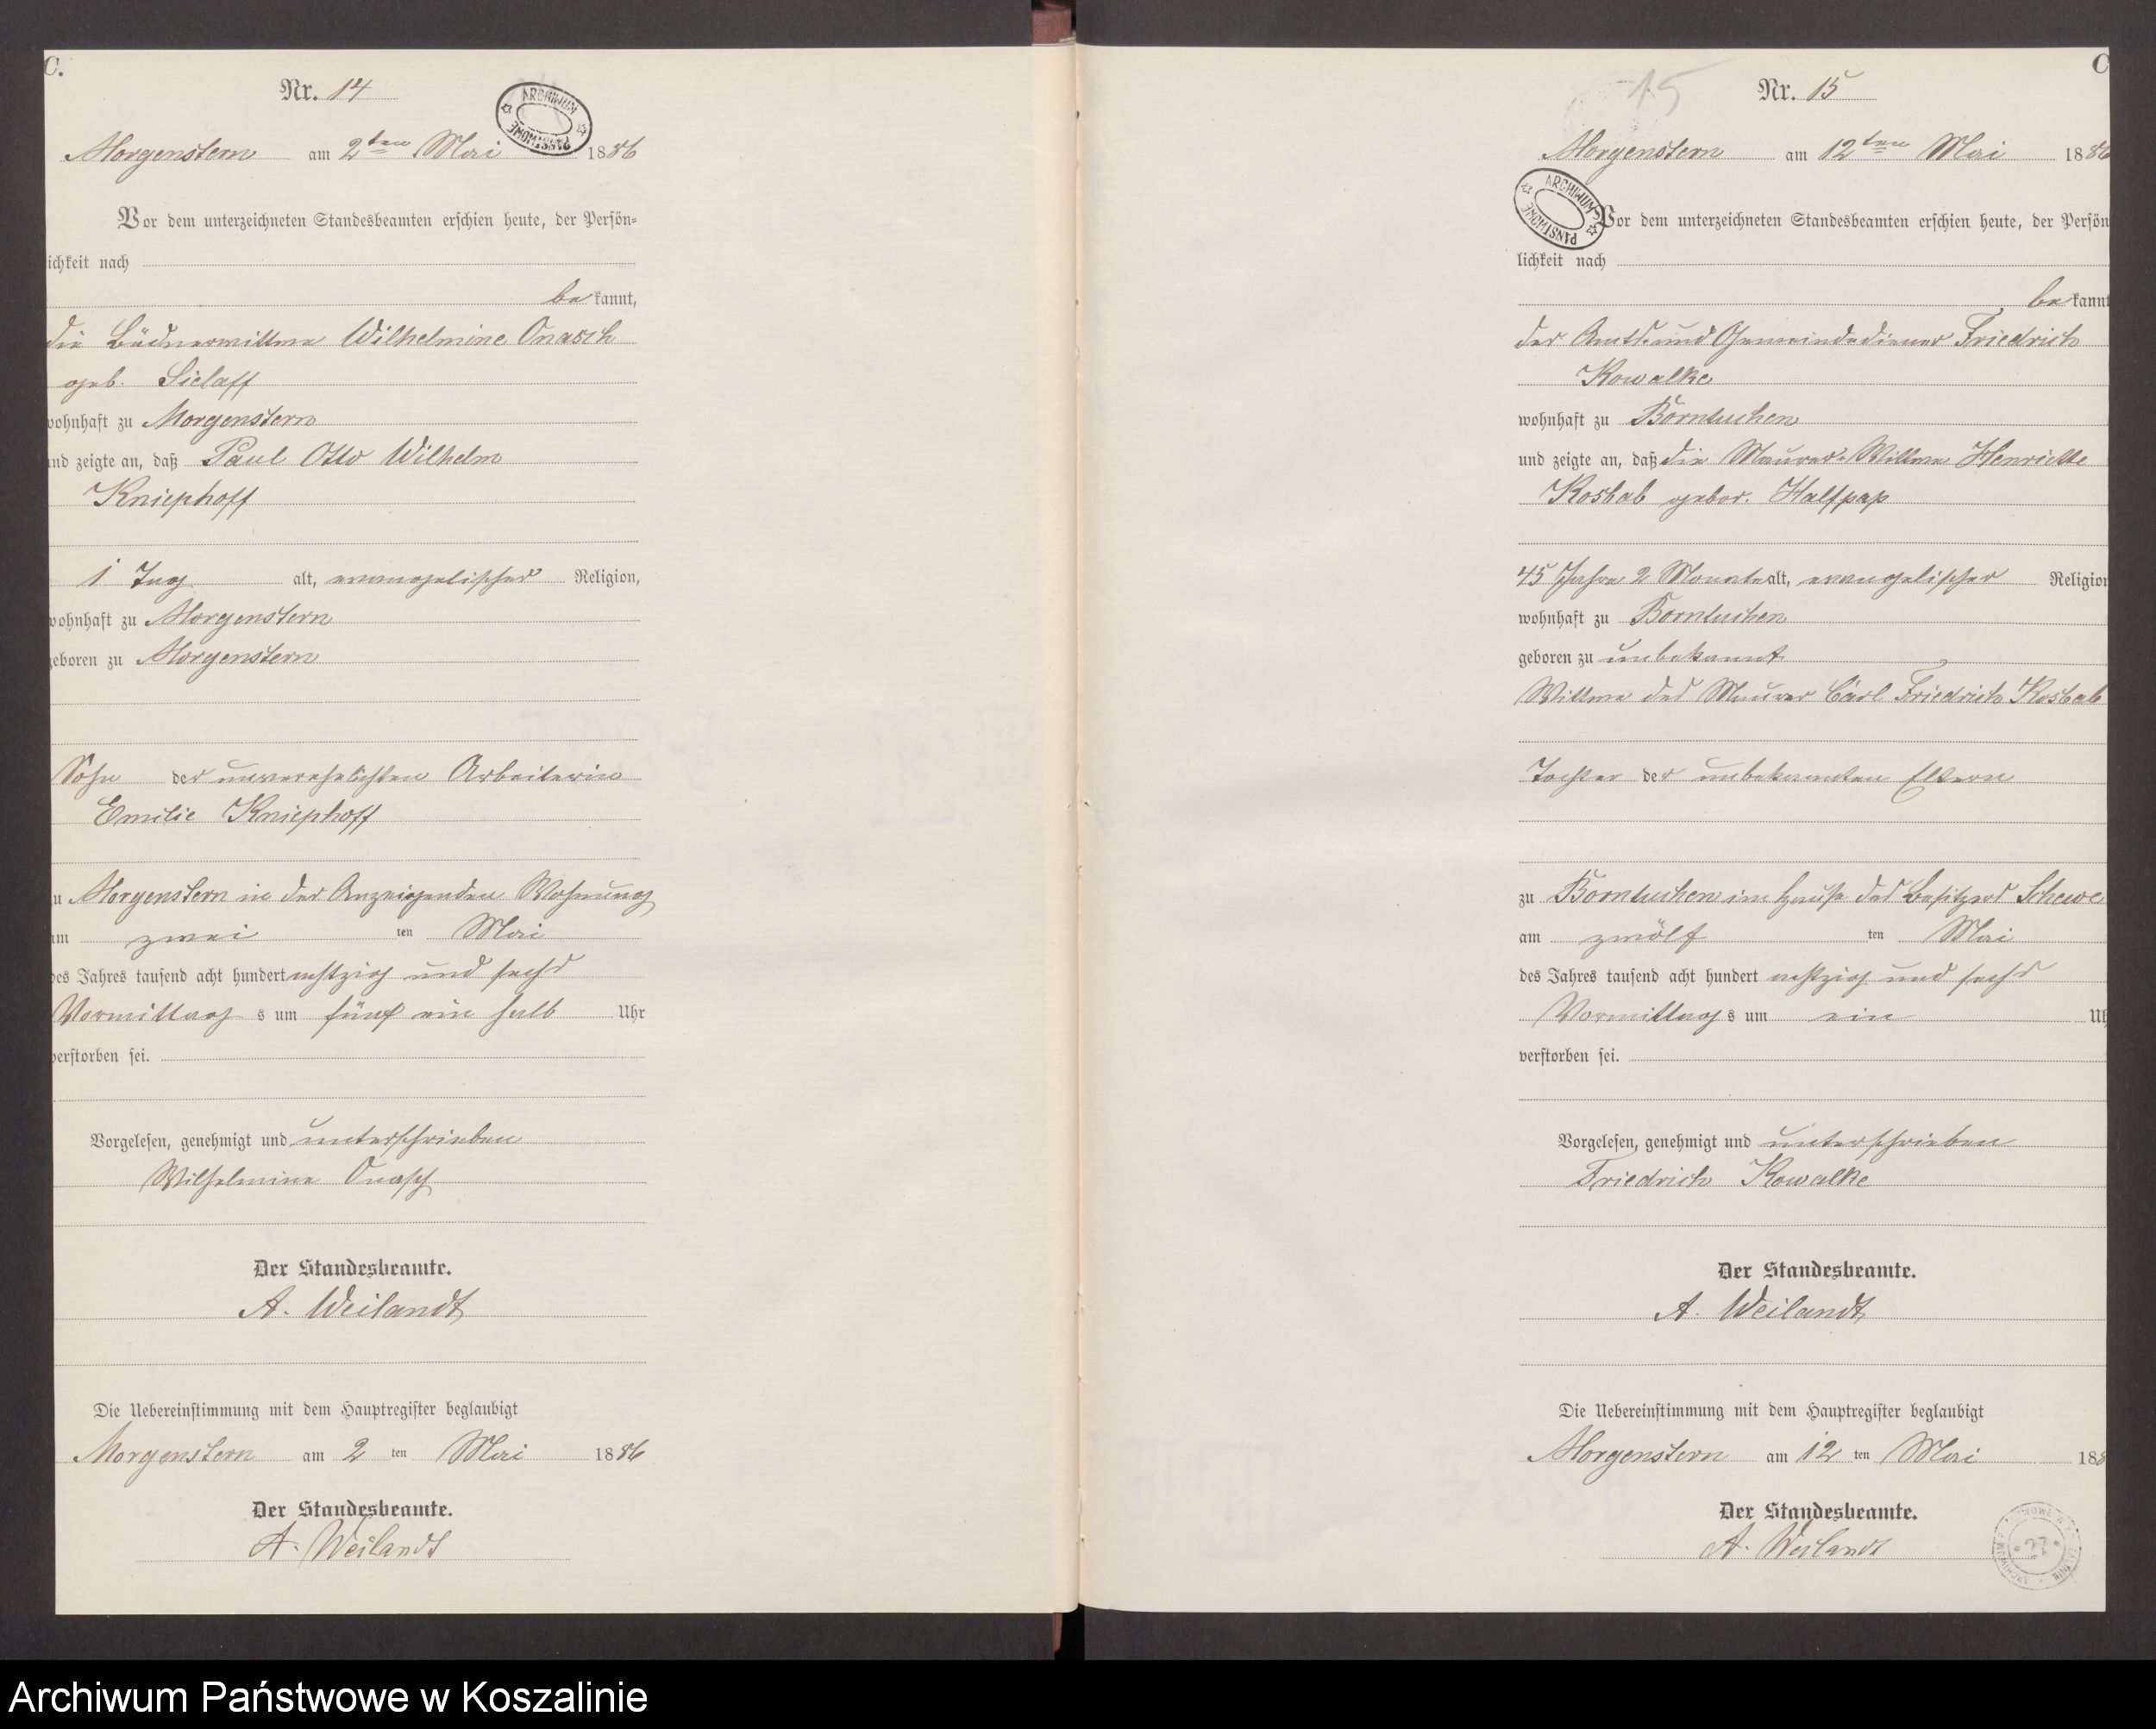 C.
Nr. 14
ARCHIWUM PAŃSTWOWE
Morgenstern am 2ten Mai 1886
Vor dem unterzeichneten Standesbeamten erschien heute, der Persön-
ichkeit nach
be kannt,
die Büdnerwittwe Wilhelmine Onasch
geb. Sielaff
wohnhaft zu Morgenstern
und zeigte an, daß Paul Otto Wilhelm
Kniephoff
1 Tag alt, evangelischer Religion,
wohnhaft zu Morgenstern
geboren zu Morgenstern
Sohn der unverehelichten Arbeiterin
Emilie Kniephoff
zu Morgenstern in der Anzeigenden Wohnung
am zwei ten Mai
des Jahres tausend acht hundert achtzig und sechs
Vormittag s um fünf ein halb Uhr
verstorben sei.
Vorgelesen, genehmigt und unterschrieben
Wilhelmine Onasch
Der Standesbeamte.
A. Weilandt
Die Uebereinstimmung mit dem Hauptregister beglaubigt
Morgenstern am 2 ten Mai 1886
Der Standesbeamte.
A. Weilandt
C
15
Nr. 15
Morgenstern am 12ten Mai 1886
ARCHIWUM PAŃSTWOWE
Vor dem unterzeichneten Standesbeamten erschien heute, der Persön
lichkeit nach
be kannt
der Amts- und Gemeindediener Friedrich
Kowalke
wohnhaft zu Borntuchen
und zeigte an, daß die Maurer-Wittwe Henriette
Kosbab gebor. Halfpap
45 Jahre 2 Monate alt, evangelischer Religion
wohnhaft zu Borntuchen
geboren zu unbekannt
Wittwe des Maurer Carl Friedrich Kosbab
Tochter der unbekannten Eltern
zu Borntuchen im Hause des Besitzers Schewe
am zwölf ten Mai
des Jahres tausend acht hundert achtzig und sechs
Vormittag s um ein Uh
verstorben sei.
Vorgelesen, genehmigt und unterschrieben
Friedrich Kowalke
Der Standesbeamte.
A. Weilandt
Die Uebereinstimmung mit dem Hauptregister beglaubigt
Morgenstern am 12 ten Mai 188
Der Standesbeamte.
A. Weilandt
27
Archiwum Państwowe w Koszalinie